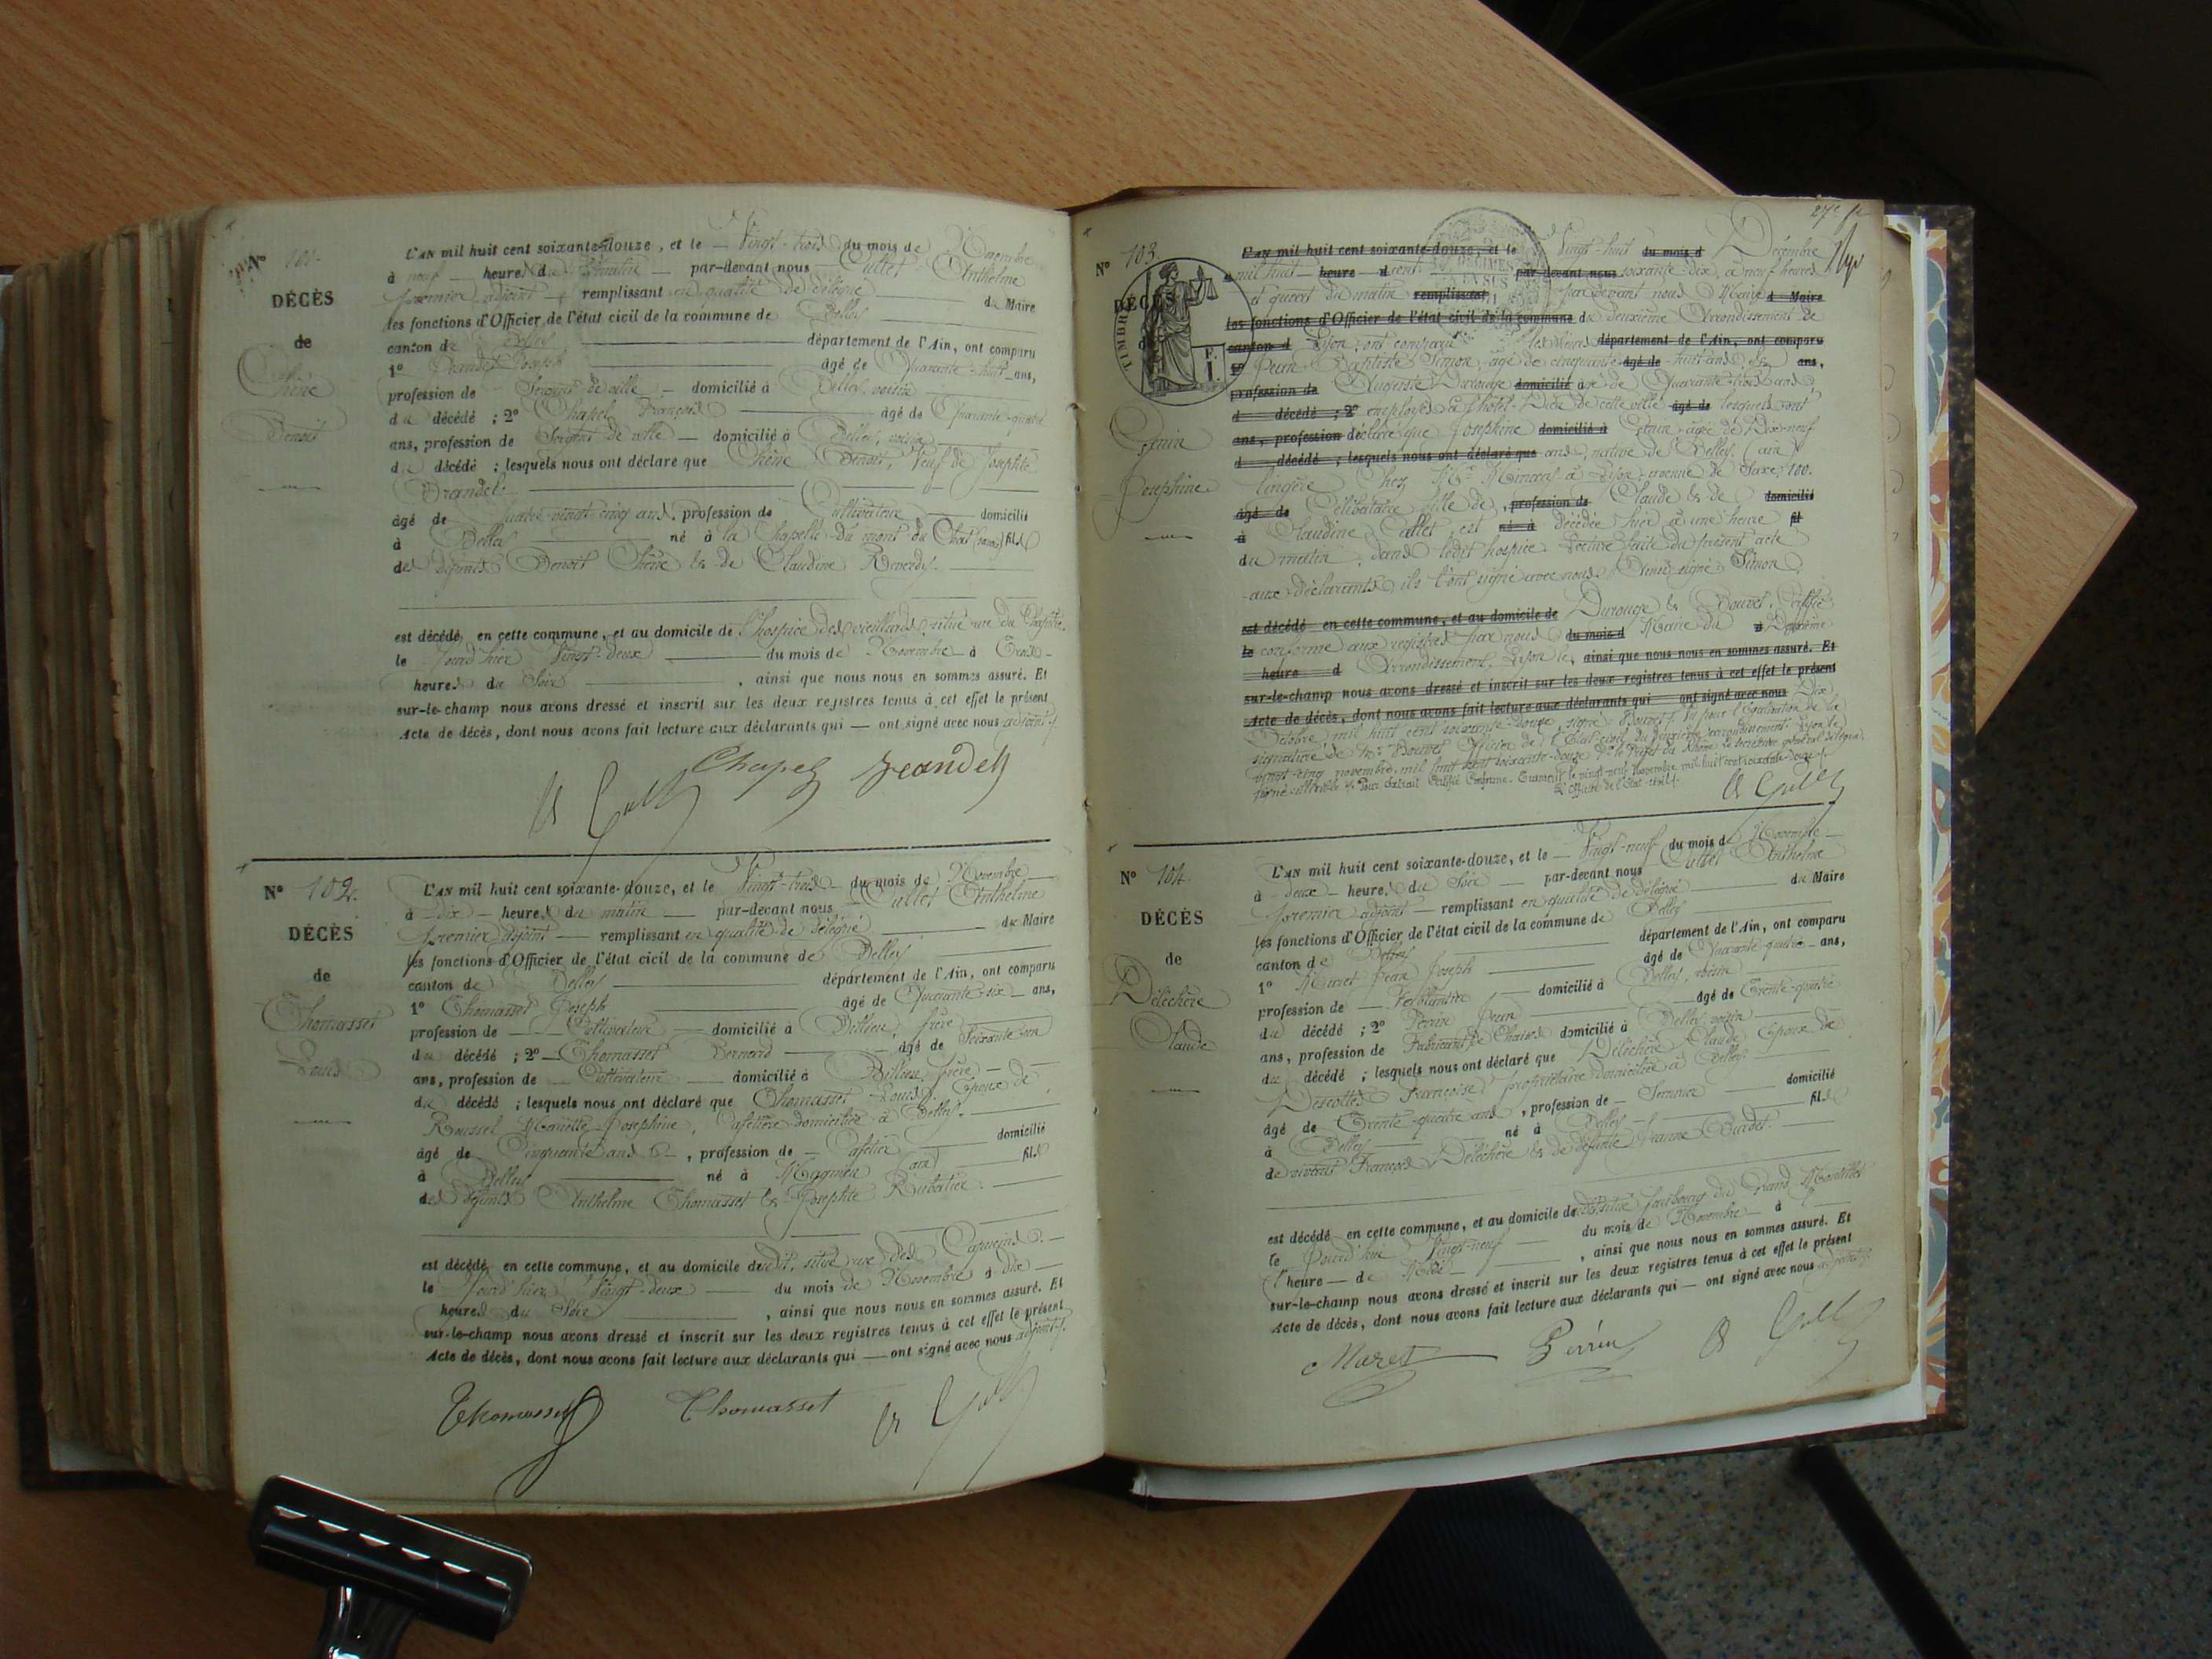 N° 101.
DÉCÈS
de
Chêne
Benoît
L'AN mil huit cent soixante-douze, et le Vingt-trois du mois de Novembre
à neuf heures du Matin par-devant nous Cullet Anthelme
premier adjoint remplissant en qualité de délégué du Maire
les fonctions d'Officier de l'état civil de la commune de Belley
canton de Belley département de l'Ain, ont comparu
1° Joseph âgé de Quarante-huit ans,
profession de Sergent de ville domicilié à Belley, voisin
du décédé ; 2° Chapel François âgé de Quarante-quatre
ans, profession de Sergent de ville domicilié à Belley, voisin
du décédé ; lesquels nous ont déclaré que Chêne Benoît, Veuf de Josephte
âgé de Quatre-vingt-cinq ans, profession de Cultivateur domicilié
à Belley né à la Chapelle du mont du Chat fils
des défunts Benoît Chêne & de Claudine
est décédé en cette commune, et au domicile de l'hospice des vieillards, situé rue du Chapitre,
le jourd'hier Vingt-deux du mois de Novembre à Trois
heures du Soir, ainsi que nous nous en sommes assuré. Et
sur-le-champ nous avons dressé et inscrit sur les deux registres tenus à cet effet le présent
Acte de décès, dont nous avons fait lecture aux déclarants qui ont signé avec nous adjoint
Chapel Jeandet
N° 102.
DÉCÈS
de
Thomasset
Louis
L'AN mil huit cent soixante-douze, et le Vingt-trois du mois de Novembre
à dix heures du matin par-devant nous Cullet Anthelme
premier adjoint remplissant en qualité de délégué du Maire
les fonctions d'Officier de l'état civil de la commune de Belley
canton de Belley département de l'Ain, ont comparu
1° Thomasset Joseph âgé de Quarante-six ans,
profession de Cultivateur domicilié à Billieu, frère
du décédé ; 2° Thomasset Bernard âgé de Soixante un
ans, profession de Cultivateur domicilié à Billieu, frère
du décédé ; lesquels nous ont déclaré que Thomasset Louis, Epoux de
Roussel Mariette Josephine, Cafetière domiciliée à Belley.
âgé de Cinquante ans, profession de Cafetier domicilié
à Belley né à Magnieu (ain) fils
des défunts Anthelme Thomasset & Josephte Rubatier.
est décédé en cette commune, et au domicile du dit, situé rue des Capucins
le jourd'hier Vingt-deux du mois de Novembre à dix
heures du Soir, ainsi que nous nous en sommes assuré. Et
sur-le-champ nous avons dressé et inscrit sur les deux registres tenus à cet effet le présent
Acte de décès, dont nous avons fait lecture aux déclarants qui ont signé avec nous adjoint
Thomasset Thomasset
N° 103.
DÉCÈS
TIMBRE
Josephine
L'AN mil huit cent soixante-douze, et le Vingt-huit du mois d Décembre
mil huit heure d cent par-devant nous soixante-dix, à neuf heures
et quart du matin remplissant par devant nous Maire d Maire
les fonctions d'Officier de l'état civil de la commune du deuxième Arrondissement de
canton d Lyon, ont comparu les sieurs département de l'Ain, ont comparu
1° Jean Baptiste Simon, âgé de cinquante âgé de huit ans, & ans,
profession de Auguste Durouge domicilié âgé de Quarante-trois ans,
d décédé ; 2° employés à l'hôtel-Dieu de cette ville âgé de lesquels ont
ans, profession déclaré que Josephine domicilié à âgée de Dix-neuf
d décédé ; lesquels nous ont déclaré que ans, native de Belley (ain)
lingère Chez à Lyon avenue de Saxe, 100.
âgé de Célibataire fille de, profession de Claude & de domicilié
à Claudine Collet, est né à décédée hier à une heure fil
du matin, dans ledit hospice. Lecture faite du présent acte
aux déclarants, ils l'ont signé avec nous. Ainsi signé Simon,
est décédé en cette commune, et au domicile de Durouge & Bouvet. Certifié
le conforme aux registres par nous du mois d Maire du à Deuxième
heure d Arrondissement, Lyon le, ainsi que nous nous en sommes assuré. Et
sur-le-champ nous avons dressé et inscrit sur les deux registres tenus à cet effet le présent
Acte de décès, dont nous avons fait lecture aux déclarants qui ont signé avec nous Dix
Octobre mil huit cent soixante-douze, signé Bouvet. Vu pour légalisation de la
signature de Mr Bouvet Officier de l'Etat-civil du deuxième arrondissement. Lyon le
vingt-cinq novembre mil huit cent soixante-douze. Pr le Préfet du Rhône le Secrétaire général délégué,
Pour Extrait Certifié Conforme. le vingt-neuf Novembre mil huit cent soixante-douze.
L'Officier de l'Etat-civil.
N° 104.
DÉCÈS
de
Délêchère
Claude
L'AN mil huit cent soixante-douze, et le Vingt-neuf du mois de Novembre
à deux heures du Soir par-devant nous Cullet Anthelme
premier adjoint remplissant en qualité de délégué du Maire
les fonctions d'Officier de l'état civil de la commune de Belley
canton de Belley département de l'Ain, ont comparu
1° Maret Jean Joseph âgé de Quarante-quatre ans,
profession de Ferblantier domicilié à Belley, voisin
du décédé ; 2° Perrin Jean âgé de Trente-quatre
ans, profession de Fabricant de Chaises domicilié à Belley voisin
du décédé ; lesquels nous ont déclaré que Délêchère Claude Epoux de
Descottes Françoise, propriétaire domiciliée à Belley
âgé de Trente-quatre ans, profession de domicilié
à Belley né à Belley fils
de vivant François Délêchère & de défunte Jeanne
est décédé en cette commune, et au domicile du dit, situé faubourg du
le jourd'hui Vingt-neuf du mois de Novembre à
l'heure de Midi, ainsi que nous nous en sommes assuré. Et
sur-le-champ nous avons dressé et inscrit sur les deux registres tenus à cet effet le présent
Acte de décès, dont nous avons fait lecture aux déclarants qui ont signé avec nous adjoint
Maret Perrin